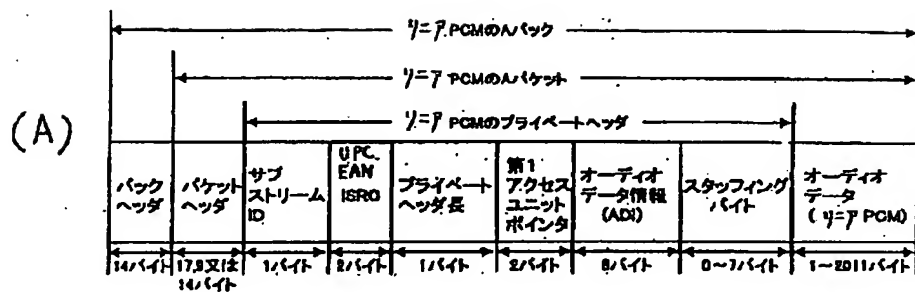 リニア PCMのAパック
リニア PCMのAパケット
(A)
リニア PCMのプライベートヘッダ
パック
ヘッダ
パケット
ヘッダ
サブ
ストリーム
ID
UPC,
EAN
ISRC
プライベート
ヘッダ長
第1
アクセス
ユニット
ポインタ
オーディオ
データ情報
(ADI)
スタッフィング
バイト
オーディオ
データ
(リニア PCM)
14バイト
17,9又は
14バイト
1バイト
2バイト
1バイト
2バイト
8バイト
0～7バイト
1～2011バイト